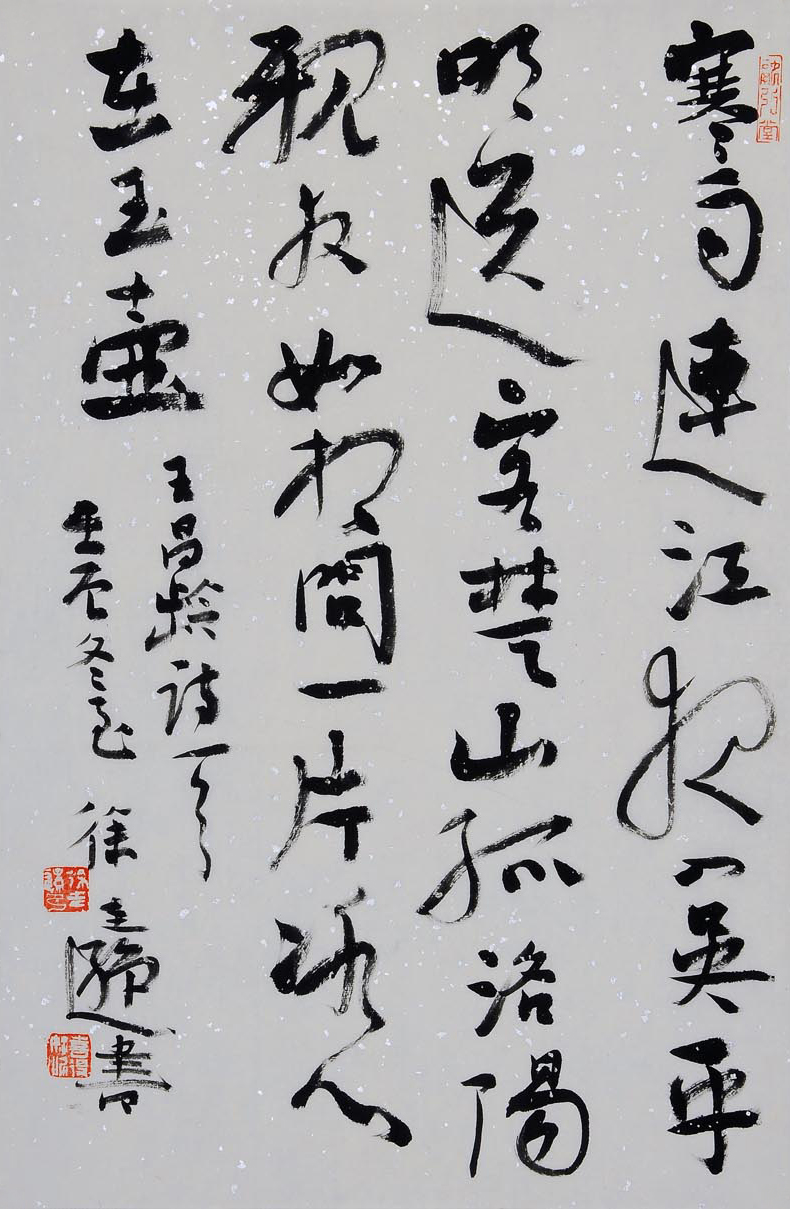 寒雨連江夜入吳平
明送客楚山孤洛陽
親友如相問一片冰心
在玉壺
王昌齡詩一首
壬辰冬至 徐書